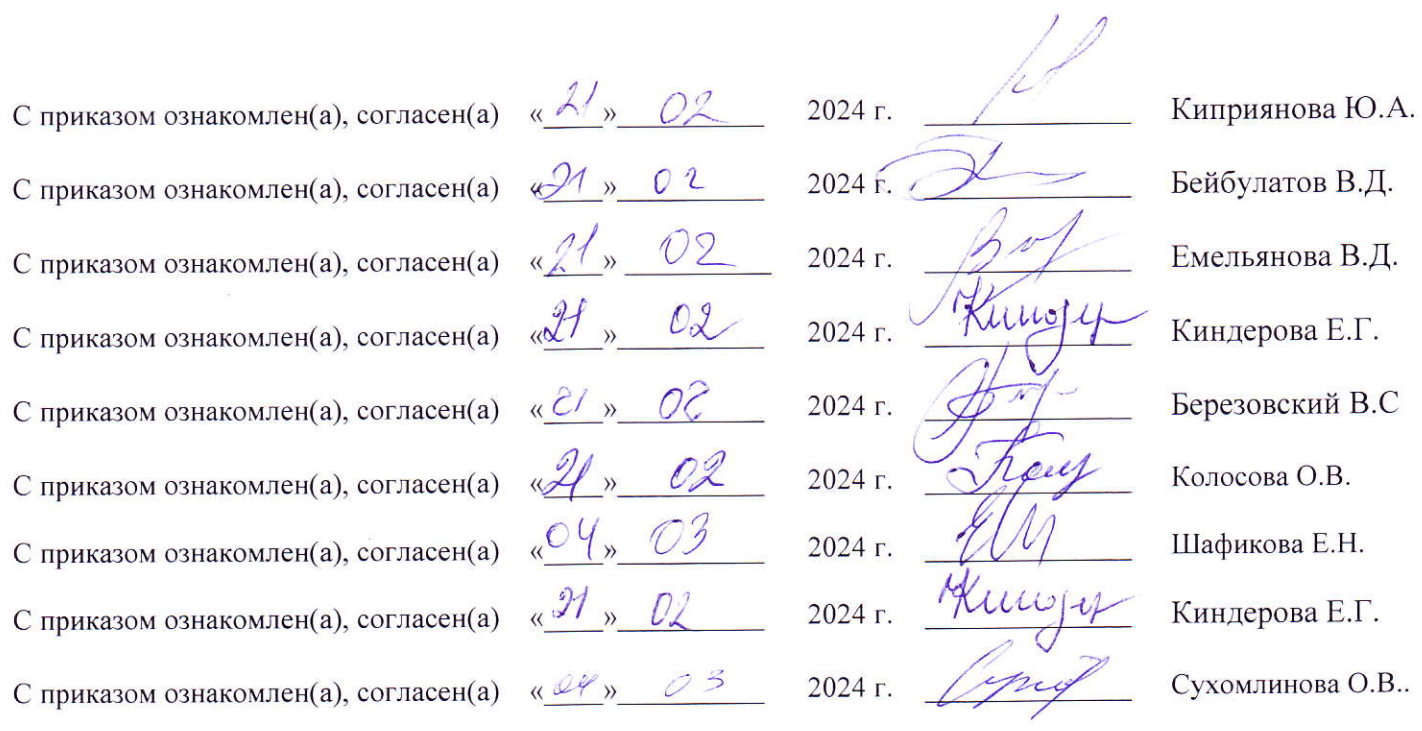 С приказом ознакомлен(а), согласен(а) «21» 02 2024 г. Киприянова Ю.А.
С приказом ознакомлен(а), согласен(а) «21» 02 2024 г. Бейбулатов В.Д.
С приказом ознакомлен(а), согласен(а) «21» 02 2024 г. Емельянова В.Д.
С приказом ознакомлен(а), согласен(а) «21» 02 2024 г. Киндерова Е.Г.
С приказом ознакомлен(а), согласен(а) «21» 02 2024 г. Березовский В.С
С приказом ознакомлен(а), согласен(а) «21» 02 2024 г. Колосова О.В.
С приказом ознакомлен(а), согласен(а) «04» 03 2024 г. Шафикова Е.Н.
С приказом ознакомлен(а), согласен(а) «21» 02 2024 г. Киндерова Е.Г.
С приказом ознакомлен(а), согласен(а) «04» 03 2024 г. Сухомлинова О.В..